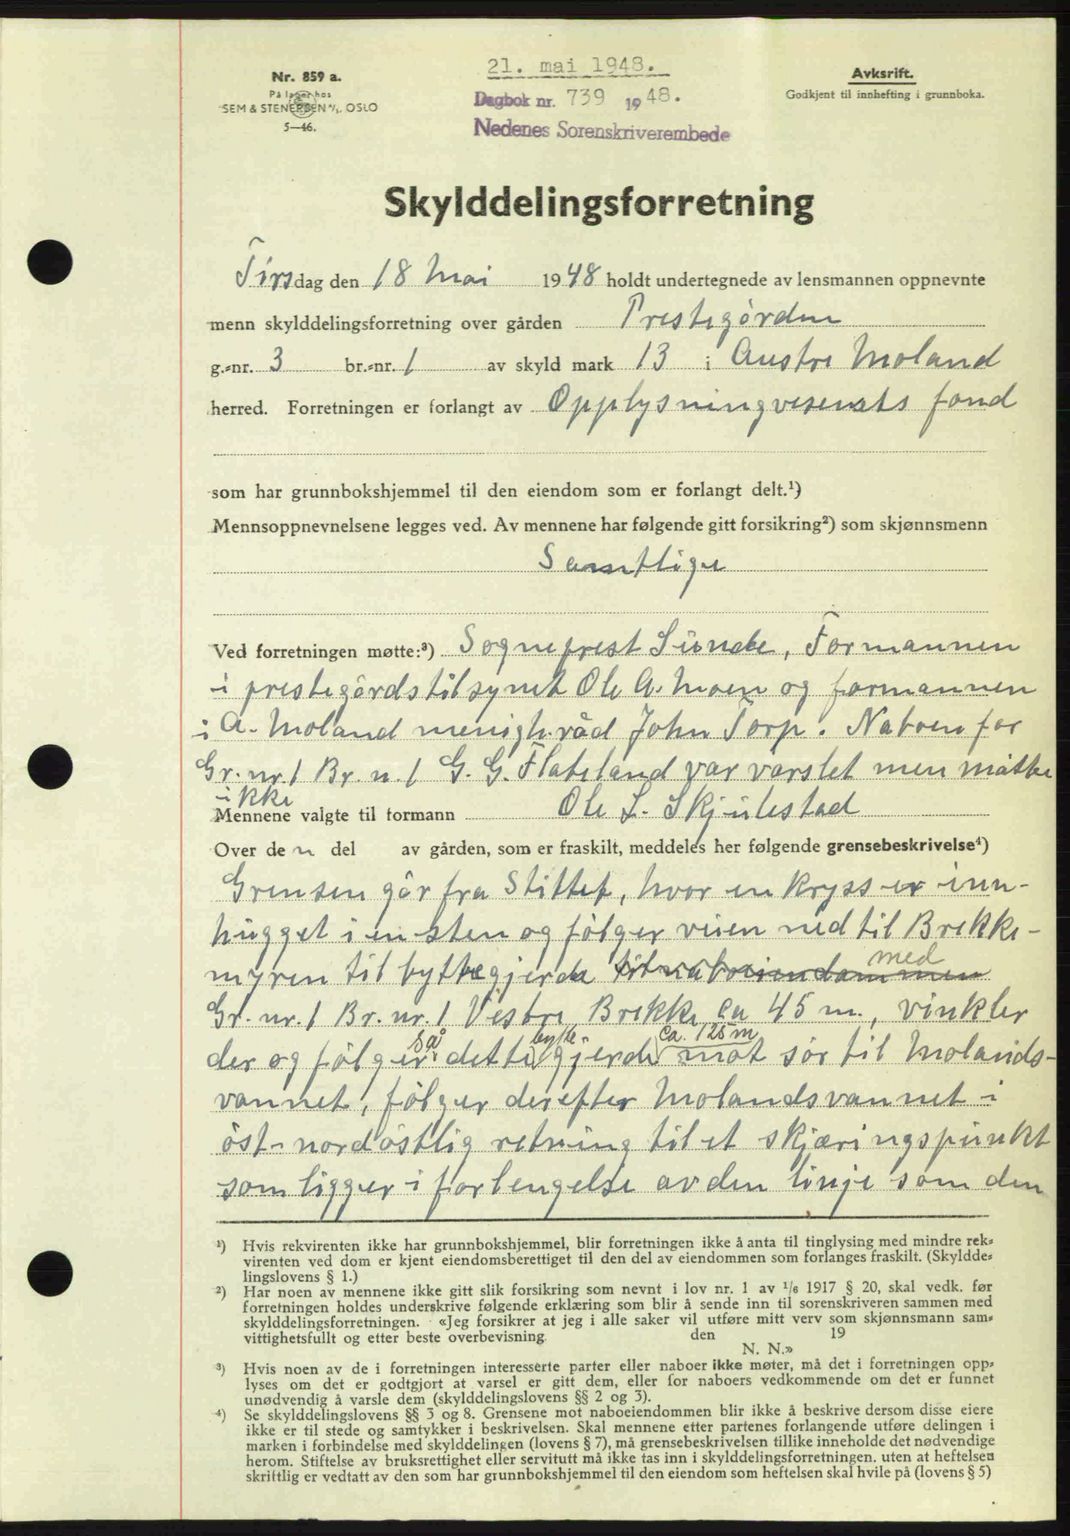 Nr. 859 a.
På lager hos
SEM & STENERSEN A/S. OSLO
5—46.
21. mai 1948.
Dagbok nr. 739 1948.
Nedenes Sorenskriverembede
Avksrift.
Godkjent til innhefting i grunnboka.
Skylddelingsforretning
Tirsdag den 18 Mai 1948 holdt undertegnede av lensmannen oppnevnte
menn skylddelingsforretning over gården Prestegården
g.-nr. 3 br.-nr. 1 av skyld mark 13 i Austre Moland
herred. Forretningen er forlangt av Opplysningvesenets fond
som har grunnbokshjemmel til den eiendom som er forlangt delt.¹)
Mennsoppnevnelsene legges ved. Av mennene har følgende gitt forsikring²) som skjønnsmenn
Samtlige
Ved forretningen møtte:³) Sogneprest Sunde, Formannen
i prestegårdstilsynet Ole A. Moen og formannen
i A. Moland menigh.råd John Torp. Naboen for
Gr. nr. 1 Br. n. 1 G. G. Flateland var varslet men møtte
ikke
Mennene valgte til formann Ole L. Skjulestad
Over den del av gården, som er fraskilt, meddeles her følgende grensebeskrivelse⁴)
Grensen går fra Stittet, hvor en kryss er inn-
hugget i en sten og følger veien ned til Brekke-
myren til byttegjerde til naboeiendommen med
Gr. nr. 1 Br. nr. 1 Vestre Brekke ca 45 m., vinkler
der og følger så dette bytte gjerde ca. 125 m mot sør til Molands-
vannet, følger derefter Molandsvannet i
öst-nordöstlig retning til et skjæringspunkt
som ligger i forlengelse av den linje som den
¹) Hvis rekvirenten ikke har grunnbokshjemmel, blir forretningen ikke å anta til tinglysing med mindre rek-
virenten ved dom er kjent eiendomsberettiget til den del av eiendommen som forlanges fraskilt. (Skyldde-
lingslovens § 1.)
²) Har noen av mennene ikke gitt slik forsikring som nevnt i lov nr. 1 av 1/6 1917 § 20, skal vedk. før
forretningen holdes underskrive følgende erklæring som blir å sende inn til sorenskriveren sammen med
skylddelingsforretningen. «Jeg forsikrer at jeg i alle saker vil utføre mitt verv som skjønnsmann sam-
vittighetsfullt og etter beste overbevisning den 19
N. N.»
³) Hvis noen av de i forretningen interesserte parter eller naboer ikke møter, må det i forretningen opp-
lyses om det er godtgjort at varsel er gitt dem, eller for naboers vedkommende om det er funnet
unødvendig å varsle dem (skylddelingslovens §§ 2 og 3).
⁴) Se skylddelingslovens §§ 3 og 8. Grensene mot naboeiendommen blir ikke å beskrive dersom disse eiere
ikke er til stede og samtykker i beskrivelsen. Skal mennene etter partenes forlangende utføre delingen i
marken i forbindelse med skylddelingen (lovens § 7), må grensebeskrivelsen tillike inneholde det nødvendige
herom. Stiftelse av bruksrettighet eller servitutt må ikke tas inn i skylddelingsforretningen. uten at heftelsen
skriftlig er vedtatt av den som har grunnbokshjemmel til den eiendom som heftelsen skal hvile på (lovens § 5)